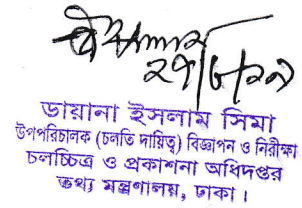 ডায়ানা ইসলাম সিমা
উপপরিচালক (চলতি দায়িত্ব) বিজ্ঞাপন ও নিরীক্ষা
চলচ্চিত্র ও প্রকাশনা অধিদপ্তর
তথ্য মন্ত্রণালয়, ঢাকা।